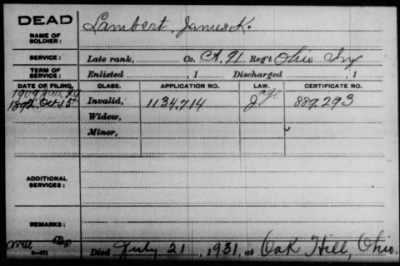 DEAD
NAME OF SOLDIER: Lambert, James K.
SERVICE: Late rank, Co. A, 91 Reg't Ohio Inf
TERM OF SERVICE: Enlisted , 1 Discharged , 1
DATE OF FILING. CLASS. APPLICATION NO. LAW. CERTIFICATE NO.
1892, Oct 15 Invalid, 1134,714 889,293
Widow,
Minor,
ADDITIONAL SERVICES:
REMARKS:
Died July 21, 1931, at Oak Hill, Ohio.